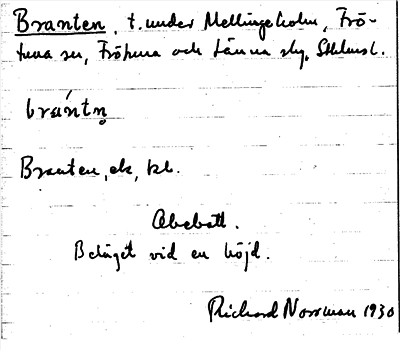 Branten, t. under Mellingeholm, Frö-
tuna sn, Frötuna och Länna slg, Sthlms l.
brántn̥
Branten, ek, kb.
Obebott.
Beläget vid en höjd.
Richard Norrman 1930